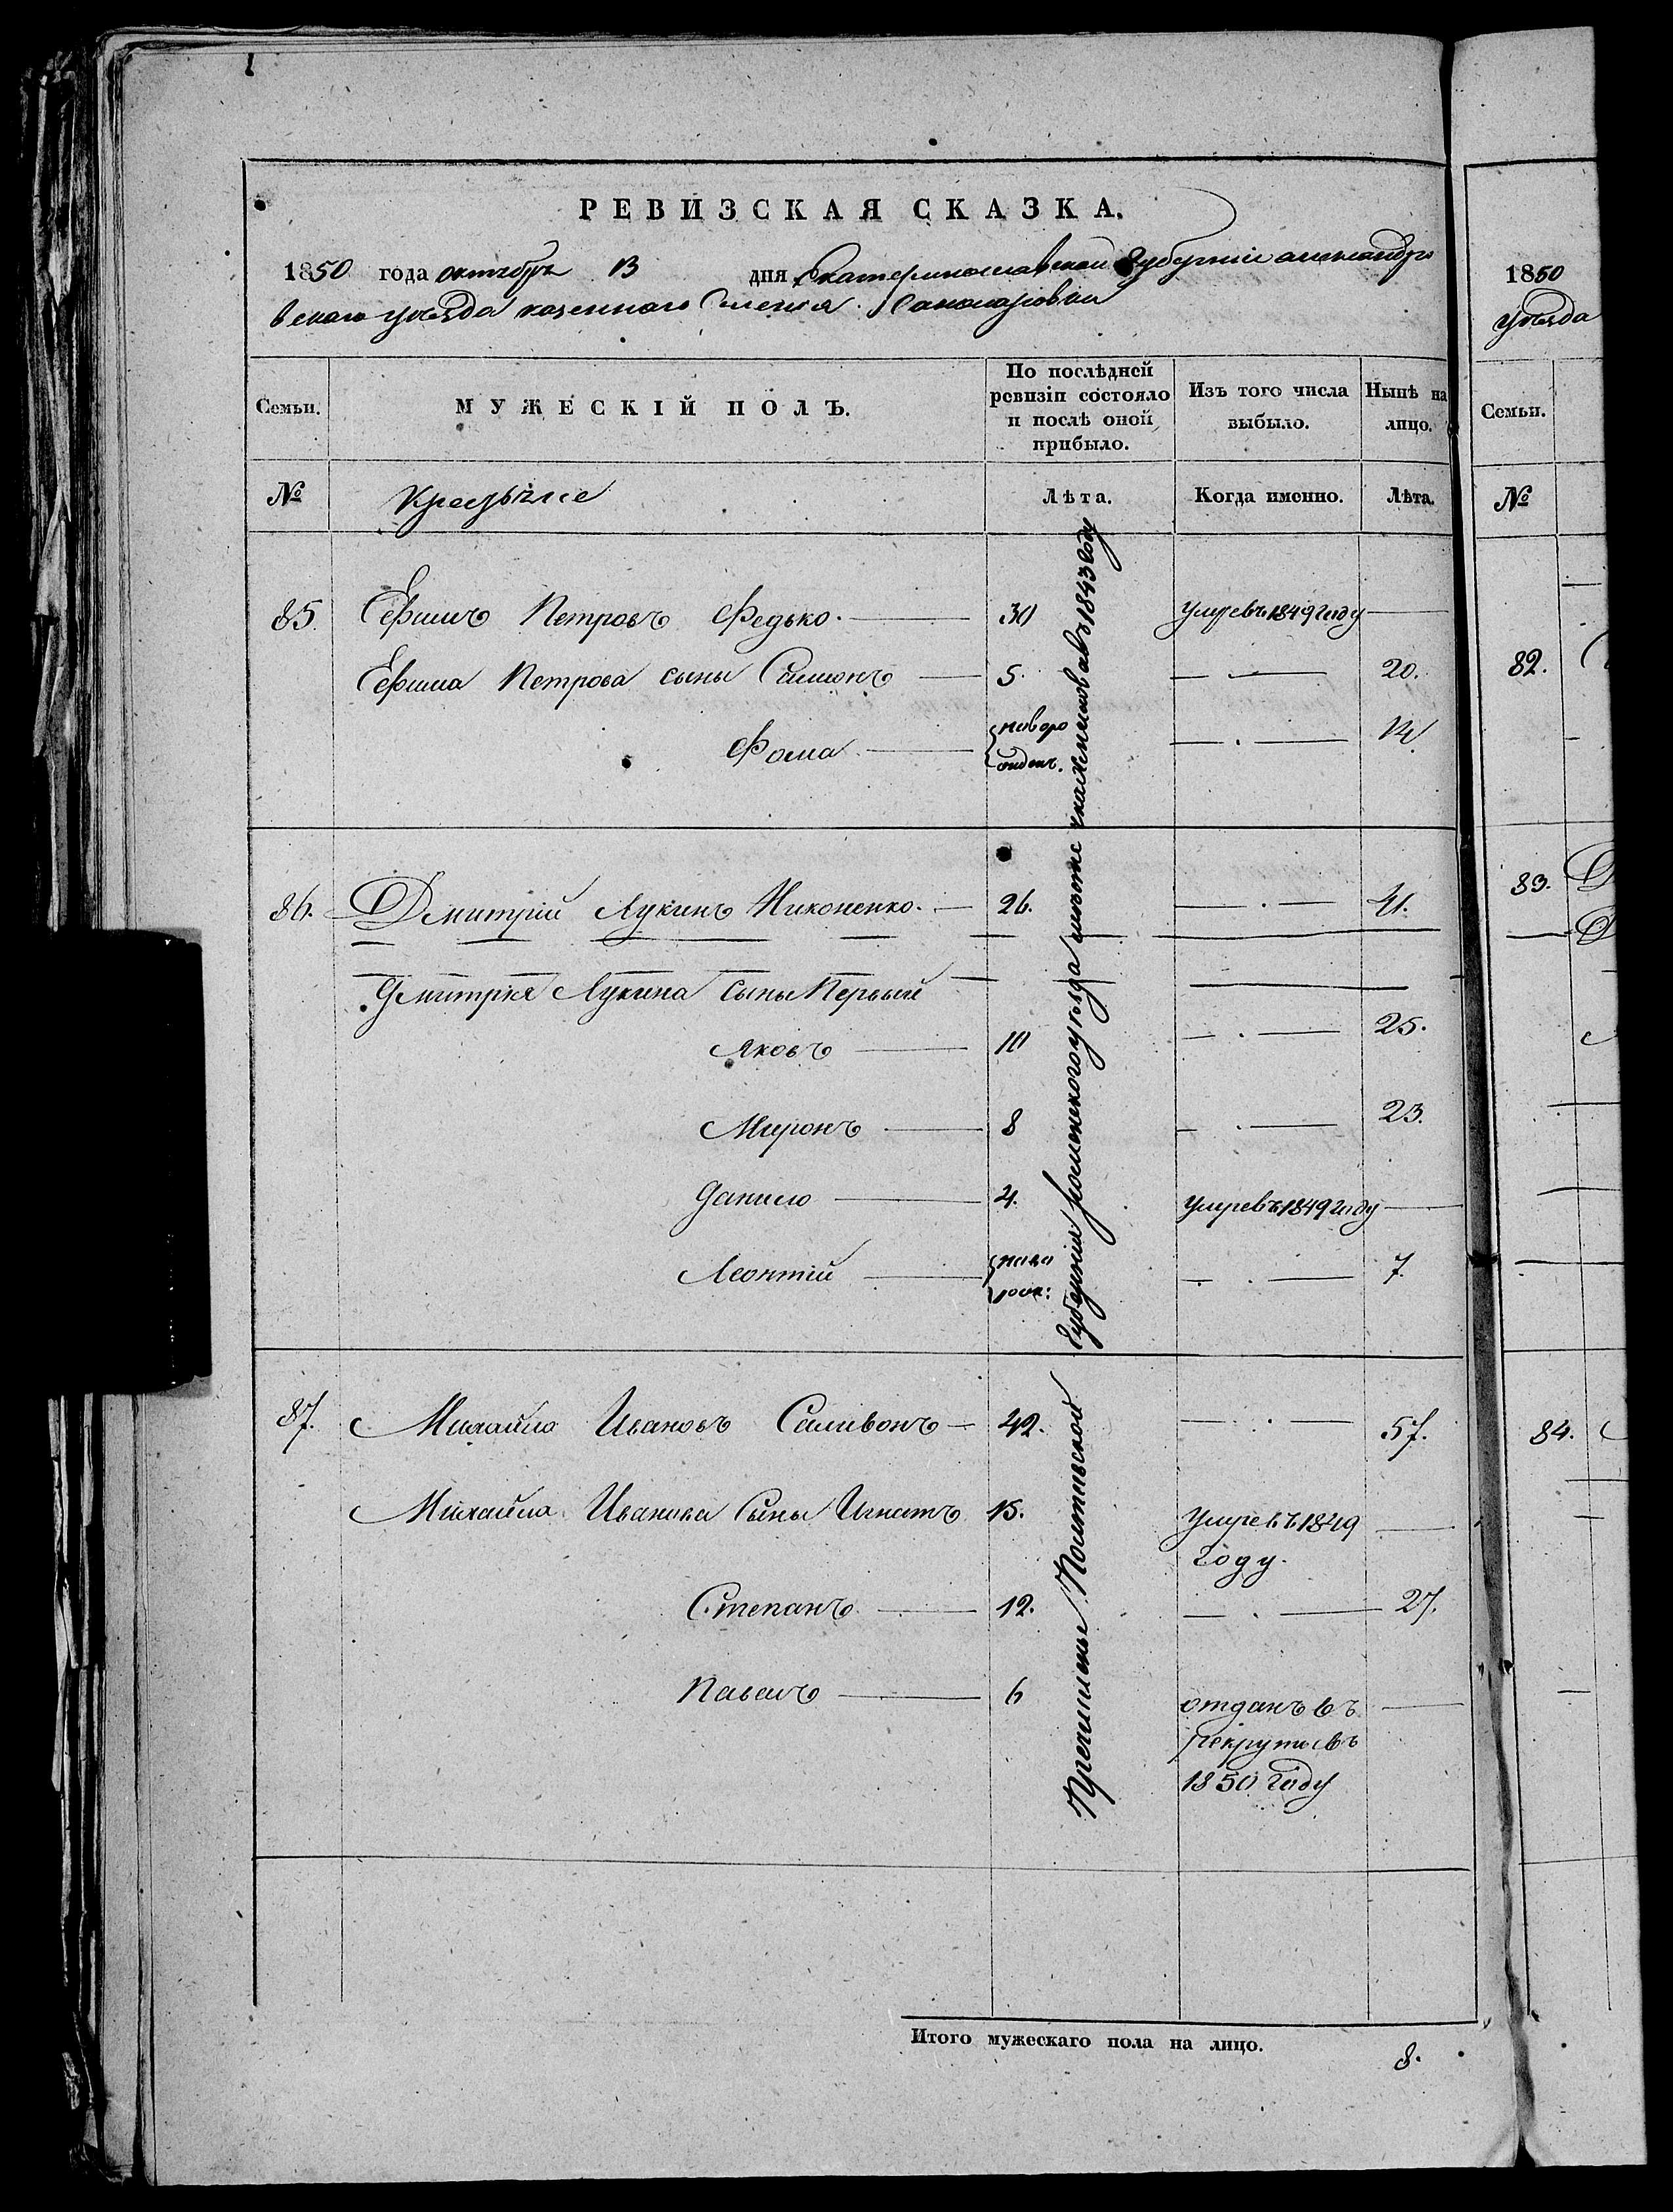 РЕВИЗСКАЯ СКАЗКА.
1850 года октября 13 дня Екатеринославской губернии александро
вского уезда казенного Селения
Семьи.
МУЖЕСКІЙ ПОЛЪ.
По послѣдней ревизіи состояло и послѣ оной прибыло.
Изъ того числа выбыло.
Нынѣ на лицо.
№
Лѣта.
Когда именно.
Лѣта.
85. Ефимъ Петровъ Федько. 30 умревъ 1849 году
Ефима Петрова сыны Симонъ 5. 20.
Фома 14
86. Дмитрій Лукинъ Никоненко. 26. 41.
Дмитрія Лукина сыны Первый
Яковъ 10 25.
Миронъ 8 23.
Данило 4. умревъ 1849 году
Леонтій 7.
87. Михайло Ивановъ Саливонъ 42. 57.
Михайла Иванова Сыны Игнатъ 15. умревъ 1849
году.
Степанъ 12. 27.
Павелъ 6 отданъ въ
рекруты въ
1850 году
губернии роменского уезда 1843 году
Итого мужескаго пола на лицо. 8.
1850
уезда
Семьи.
№
82.
83.
84.